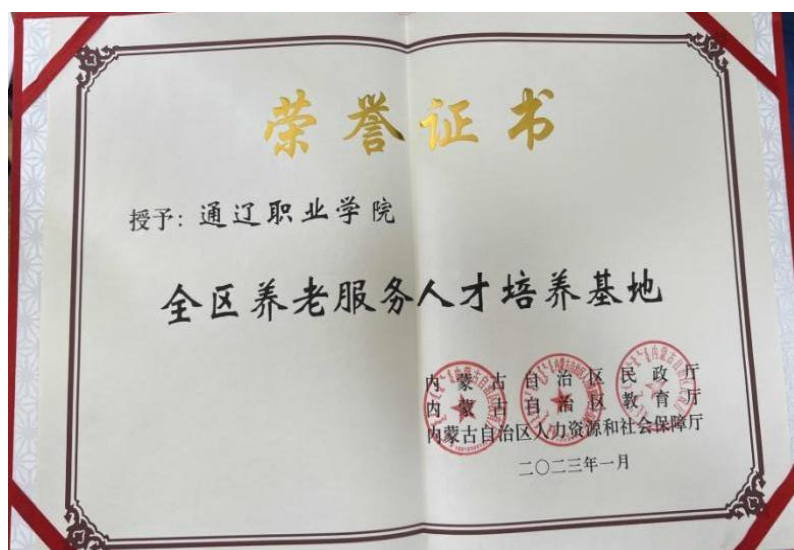 荣誉证书
授予：通辽职业学院
全区养老服务人才培养基地
内蒙古自治区民政厅
内蒙古自治区教育厅
内蒙古自治区人力资源和社会保障厅
二〇二三年一月